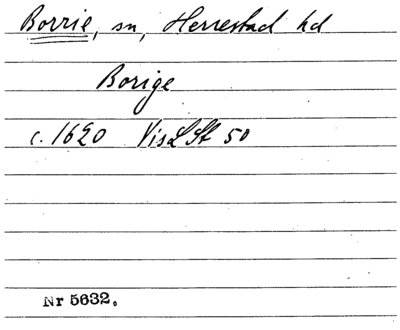 Borrie, sn, Herrestad hd
Borige
c. 1620 VisLSt 50
Nr 5632.